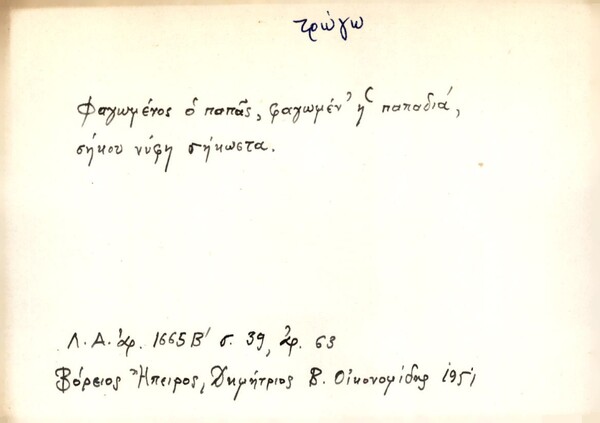 τρώγω
Φαγωμένος ὁ παπᾶς, φαγωμέν' ἡ παπαδιά,
σήκου νύφη σήκωστα.
Λ. Α. ἀρ. 1665 Β' σ. 39, ἀρ. 63
Βόρειος Ἤπειρος, Δημήτριος Β. Οἰκονομίδης 1951